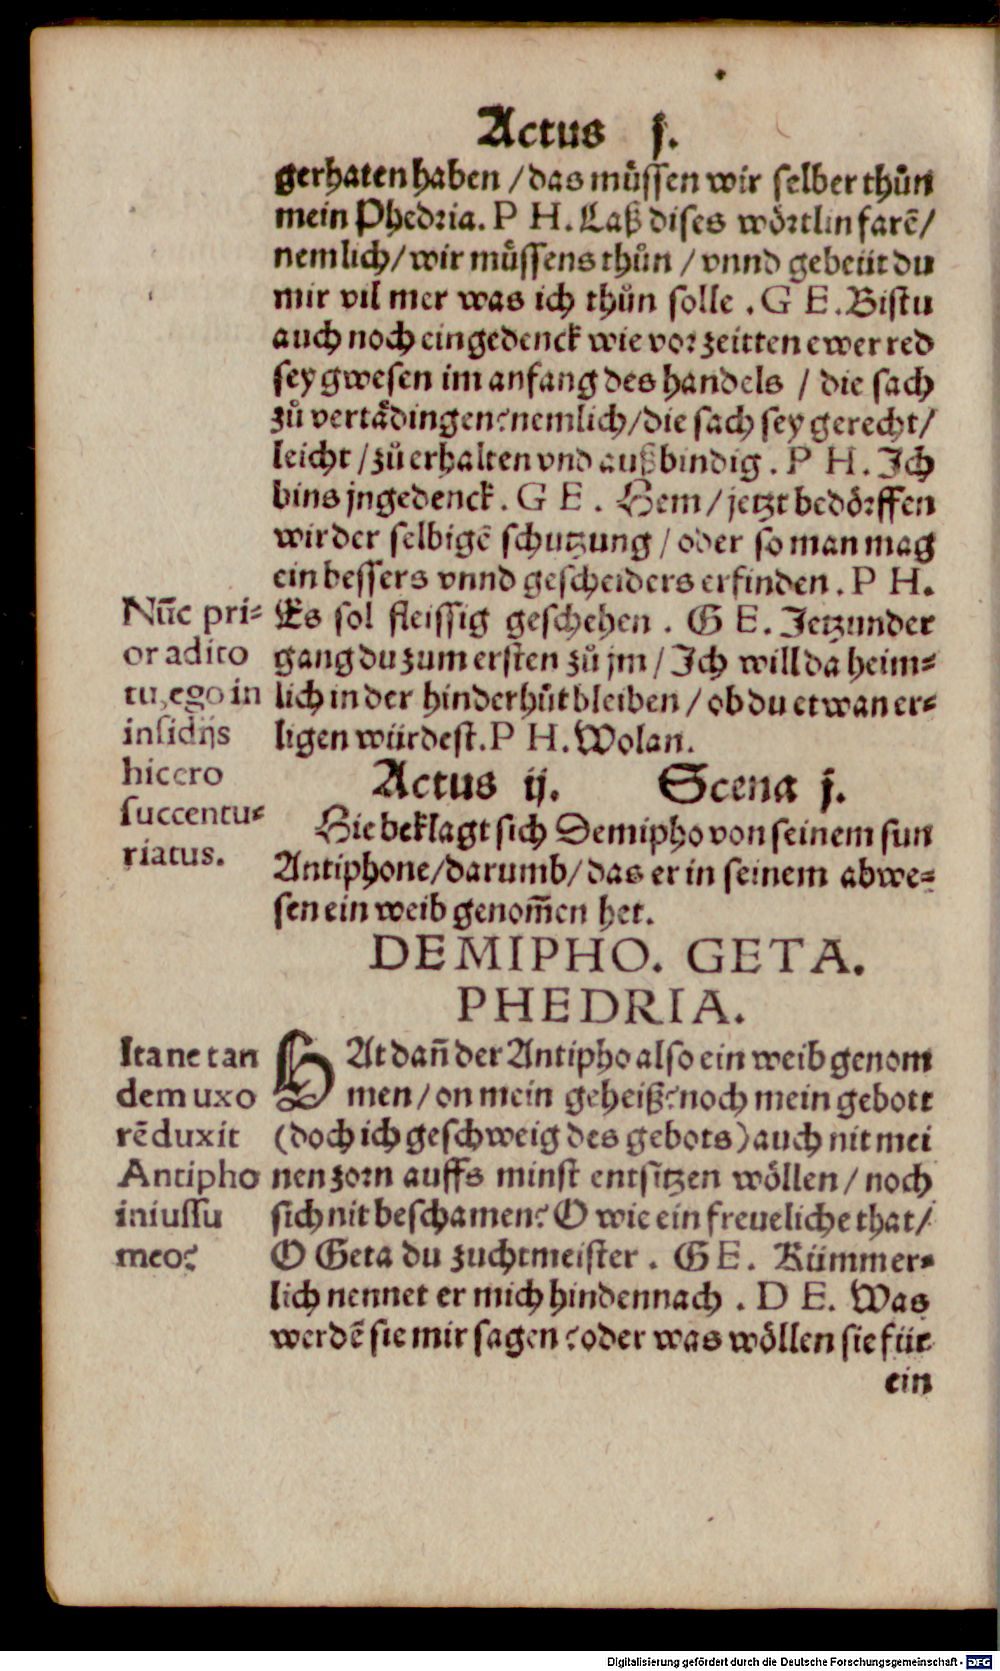 Actus j.
gerhaten haben / das müssen wir selber thůn
mein Phedria. P H. Laß dises wörtlin farē /
nemlich / wir müssens thůn / vnnd gebeüt du
mir vil mer was ich thůn solle . G E. Bistu
auch noch eingedenck wie vor zeitten ewer red
sey gwesen im anfang des handels / die sach
zů vertädingen? nemlich / die sach sey gerecht /
leicht / zů erhalten vnd außbindig . P H. Ich
bins jngedenck . G E . Hem / jetzt bedörffen
wir der selbigē schutzung / oder so man mag
ein bessers vnnd gescheiders erfinden . P H.
Es sol fleissig geschehen . G E. Jetzunder
gang du zum ersten zů jm / Ich will da heim=
lich in der hinderhůt bleiben / ob du etwan er=
ligen würdest. P H. Wolan.
Nūc pri=
or adito
tu, ego in
insidijs
hic ero
succentu=
riatus.
Actus ij. Scena j.
Hie beklagt sich Demipho von seinem sun
Antiphone / darumb / das er in seinem abwe=
sen ein weib genom̄en het.
DEMIPHO. GETA.
PHEDRIA.
HAt dañ der Antipho also ein weib genom
men / on mein geheiß? noch mein gebott
(doch ich geschweig des gebots) auch nit mei
nen zorn auffs minst entsitzen wöllen / noch
sich nit beschamen? O wie ein freueliche that /
O Geta du zuchtmeister . G E. Kümmer=
lich nennet er mich hindennach . D E. Was
werdē sie mir sagen ? oder was wöllen sie für
ein
Itane tan
dem uxo
rē duxit
Antipho
iniussu
meo?
Digitalisierung gefördert durch die Deutsche Forschungsgemeinschaft - DFG